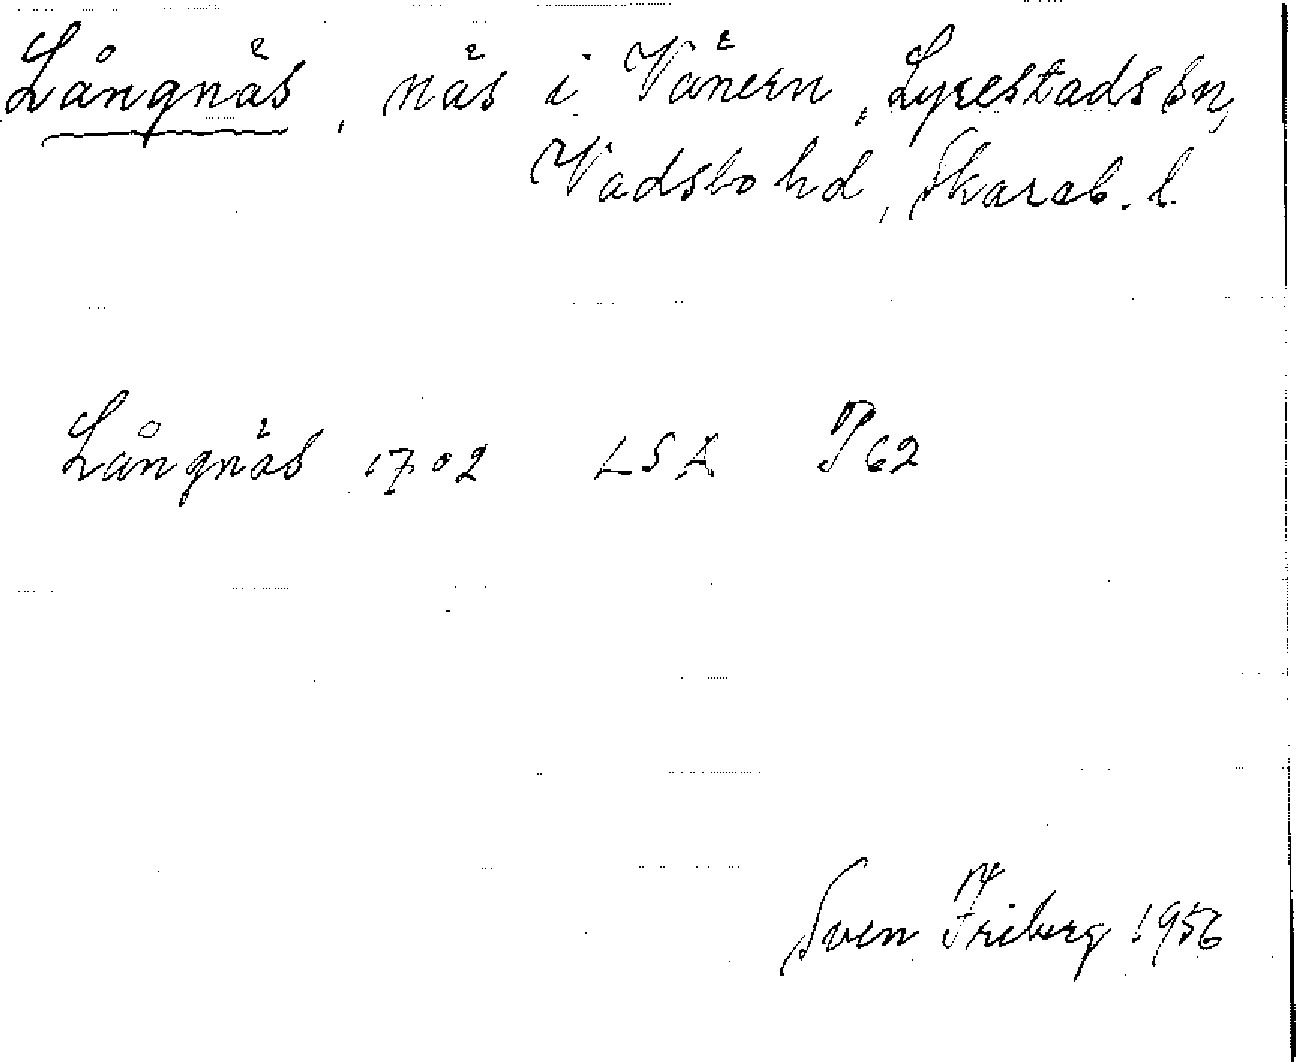 Långnäs, näs i Vänern, Lyrestads sn,
Vadsbo hd, Skarab. l.
Långnäs 1702 LSA P62
Sven Friberg 1956